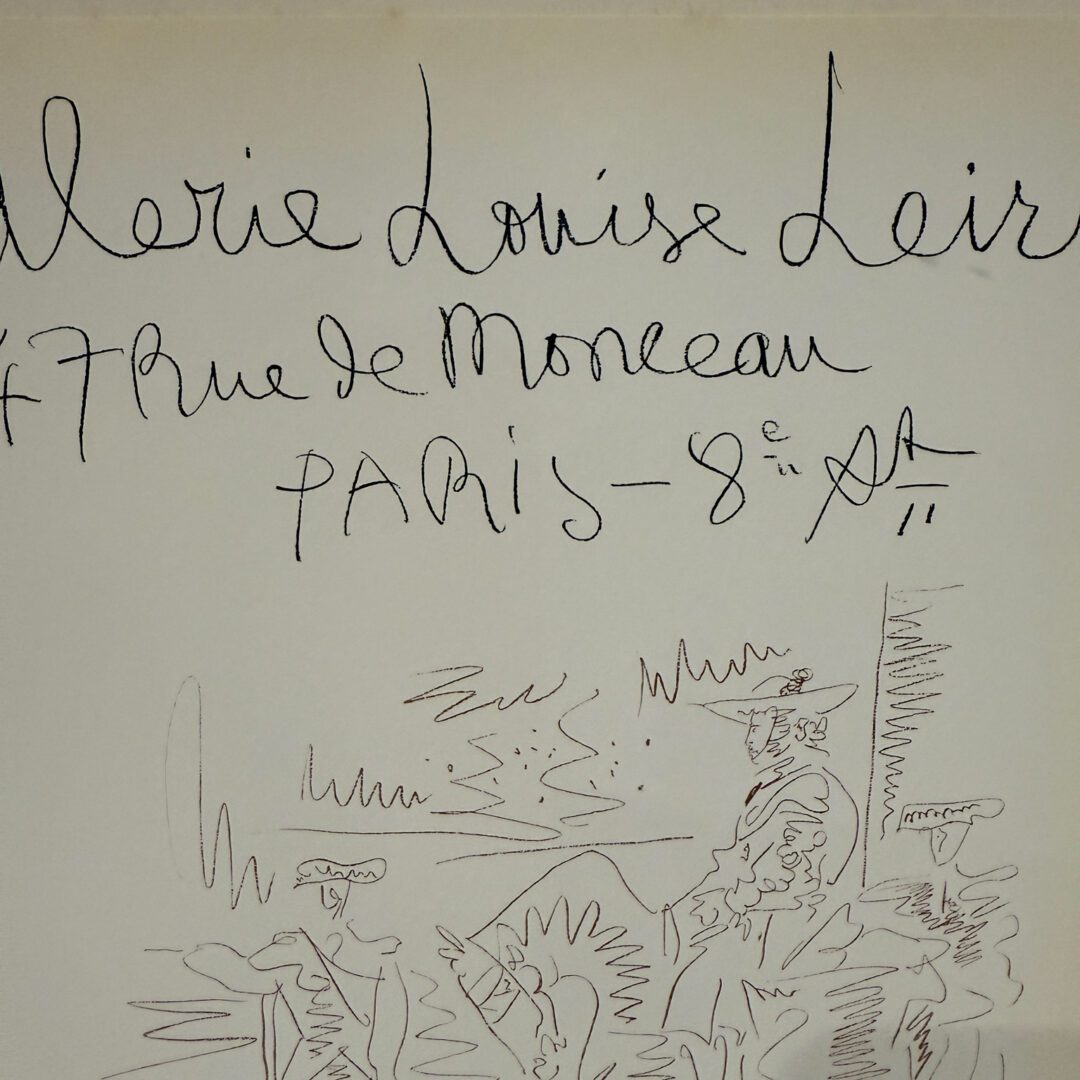 alerie Louise Leir
47 Rue de Monceau
PARIS - 8e